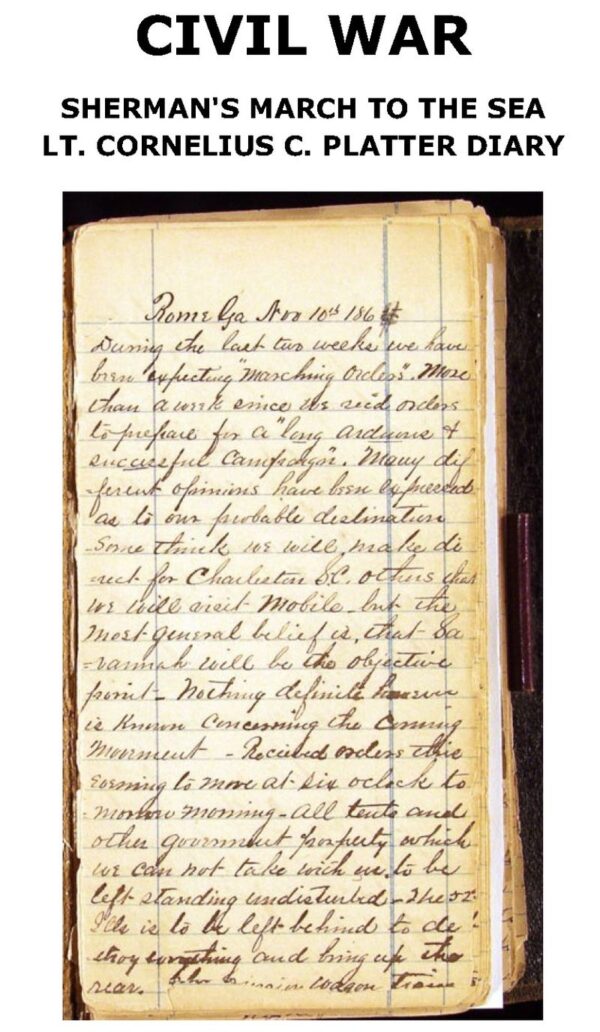 CIVIL WAR
SHERMAN'S MARCH TO THE SEA
LT. CORNELIUS C. PLATTER DIARY
Rome Ga Nov 10th 1864
During the last two weeks we have
been "expecting "Marching Orders". More
than a week since we recd orders
to prepare for a "long arduous &
successful Campaign". Many dif
ferent opinions have been expressed
as to our probable destination
- Some think we will make di
-rect for Charleston SC. others that
we will visit Mobile - but the
most general belief is, that Sa
=vannah will be the objective
point - Nothing definite however
is known concerning the coming
movement - Recieved orders this
evening to move at six oclock to
-morrow morning - All tents and
other government property which
we can not take with us, to be
left standing undisturbed - The 52"
Ills is to be left behind to de
stroy everything and bring up the
rear. wagon train